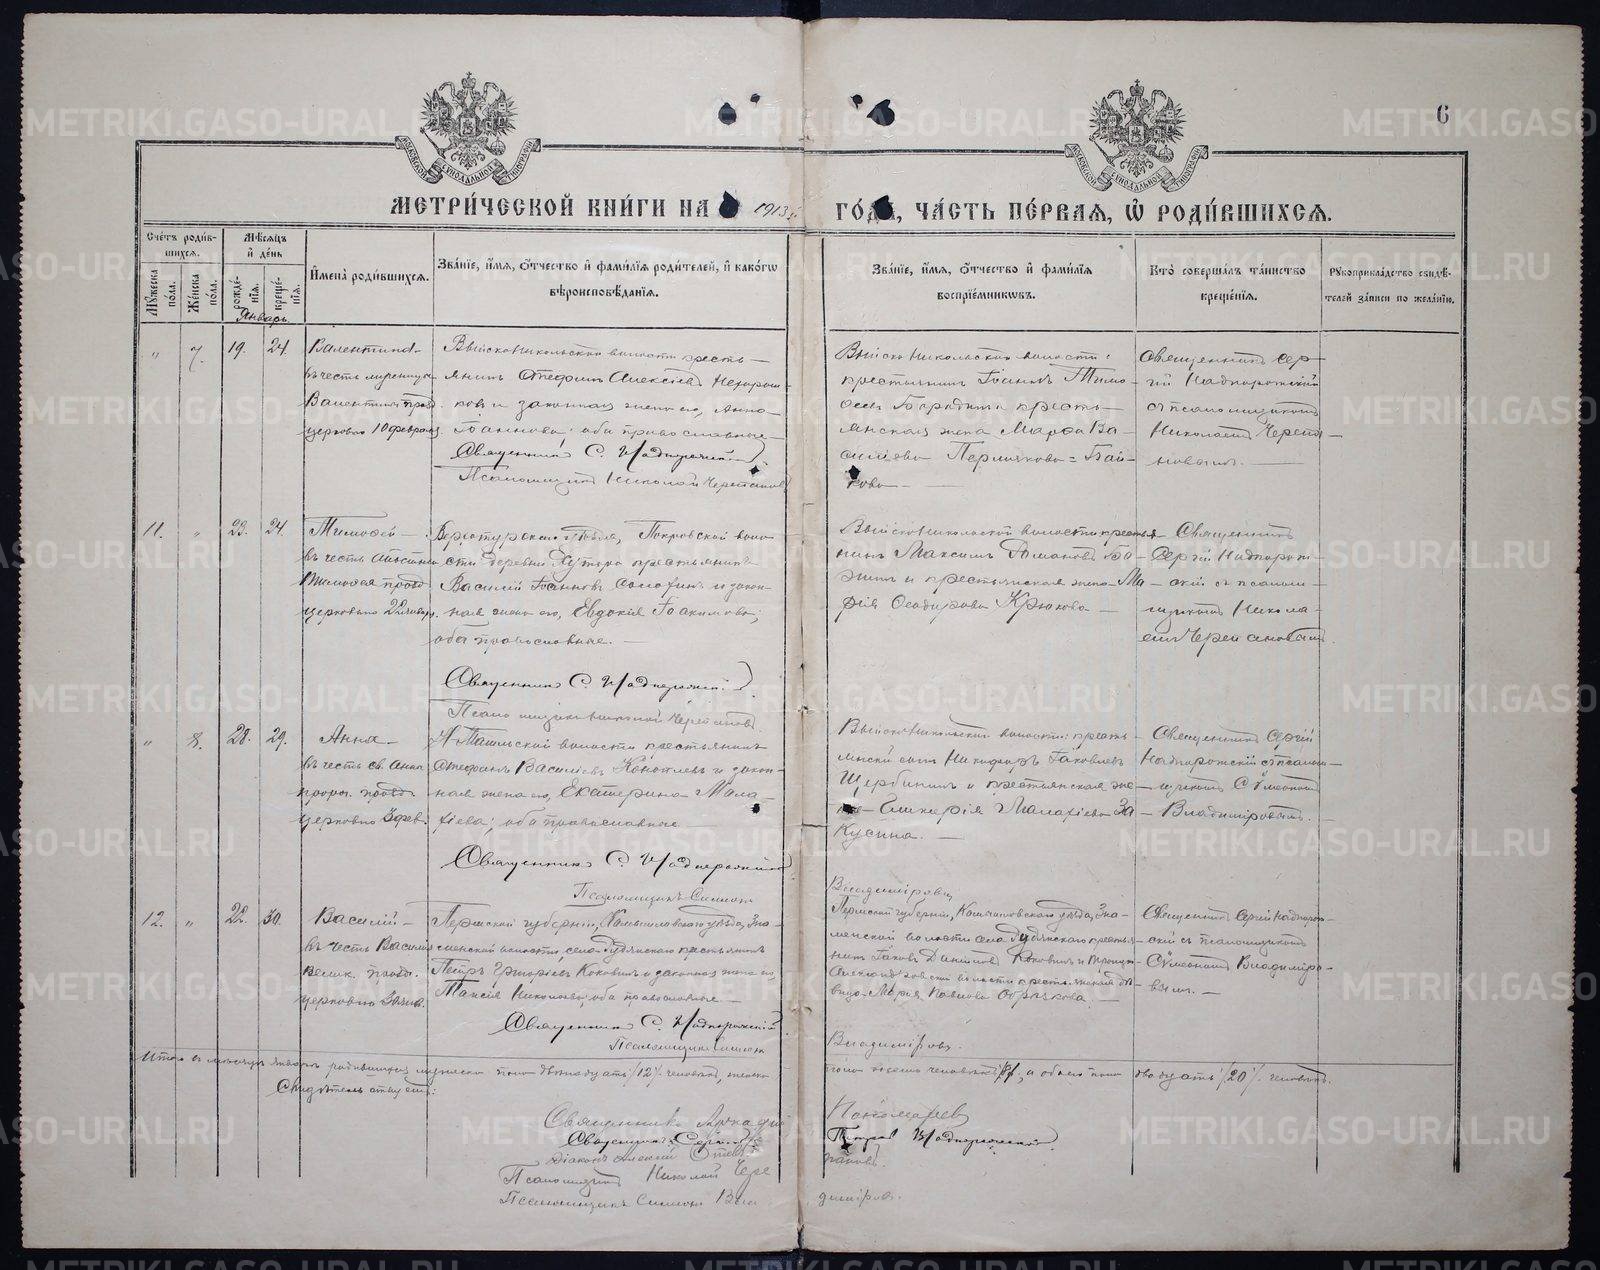 6
МОСКОВСКОЙ СѴНОДАЛЬНОЙ ТИПОГРАФІИ
МОСКОВСКОЙ СѴНОДАЛЬНОЙ ТИПОГРАФІИ
МЕТРИ́ЧЕСКОЙ КНИ́ГИ НА 1913 ГО́ДЪ, ЧА́СТЬ ПЕ́РВАЯ, Ѡ РОДИ́ВШИХСЯ.
Сче́тъ роди́в-
шихся.
Мѹ́жеска по́ла.
Же́нска по́ла.
Мѣ́сяцъ
и̂ де́нь
рожде́-
нїя.
креще́-
нїя.
И̂мена̀ роди́вшихся.
Зва́нїе, и̂́мя, о̂́тчество и̂ фами́лїя роди́телей, и̂ како́гѡ
вѣроисповѣ́данїя.
Зва́нїе, и̂́мя, о̂́тчество и̂ фами́лїя
воспрїе́мникѡвъ.
Кто̀ соверша́лъ та́инство
креще́нїя.
Рѹкоприкла́дство свидѣ́-
телей за́писи по жела́нїю.
Январь.
„ 7. 19. 24.
Валентина
въ честь мученицы
Валентины празд.
церковью 10 февраля.
Выйско Никольской волости кресть-
янинъ Стефанъ Алексіевъ Нехорош-
ковъ и законная жена его, Анна
Іоаннова; оба православные
Священникъ С. Надпорожскій
Псаломщикъ Николай Черепановъ
Выйско Никольской волости:
крестьянинъ Іоаннъ Тимо-
ѳеевъ Бородинъ и кресть-
янская жена Марѳа Ва-
сильева Пермякова = Бай-
кова
Священникъ Сер-
гій Надпорожскій
съ псаломщикомъ
Николаемъ Черепа-
новымъ.
11. „ 23. 24.
Тимоѳей
въ честь апостола
Тимоѳея празд.
церковью 22 января
Верхотурскаго уѣзда, Покровской воло-
сти деревни крестьянинъ
Василій Іоанновъ и закон-
ная жена его, Евдокія Іоакимова;
оба православные.
Священникъ С. Надпорожскій
Псаломщикъ Николай Черепановъ
Выйско Никольской волости крестья-
нинъ Максимъ
и крестьянская жена Ма-
рія Ѳеодорова Крюкова
Священникъ
Сергій Надпорож-
скій съ псалом-
щикомъ Никола-
емъ Черепановымъ.
„ 8. 28. 29.
Анна
въ честь св. Анны
пророч. празд.
церковью 3 фев.
Н-Тагильской волости крестьянинъ
Стефанъ Василіевъ Коноплевъ и закон-
ная жена его, Екатерина Мала-
хіева; оба православные
Священникъ С. Надпорожскій
Псаломщикъ Симеонъ
Выйско Никольской волости: кресть-
янскій сынъ Никифоръ Іаковлевъ
Щербининъ и крестьянская же-
на Гликерія Малахіева За-
кусина.
Владиміровъ
Священникъ Сергій
Надпорожскій съ псалом-
щикомъ Сѵмеономъ
Владиміровымъ.
12. „ 22. 30.
Василій
въ честь Василія
велик. празд.
церковью 30 янв.
Пермской губерніи, Камышловскаго уѣзда, Зна-
менской волости, села крестьянинъ
Петръ Григоріевъ Коковинъ и законная жена его,
Таисія Николаева; оба православные
Священникъ С. Надпорожскій
Псаломщикъ Симеонъ
Пермской губерніи, Камышловскаго уѣзда, Зна-
менской волости села крестья-
нинъ Іаковъ Даниловъ Коковинъ и
Александровской волости крестьянская дѣ-
вица Марія Павлова
Владиміровъ.
Священникъ Сергій Надпорож-
скій съ псаломщикомъ
Сѵмеономъ Владиміро-
вымъ.
Итого въ мѣсяцѣ январѣ родившихся мужеска пола двѣнадцать /12/ человѣкъ, женска
пола восемь человѣкъ /8/, а обоего пола двадцать /20/ человѣкъ.
Свидѣтельствуемъ:
Священникъ Аркадій Пономаревъ
Священникъ Сергій Петровъ Надпорожскій
Діаконъ Алексій
Псаломщикъ Николай Черепановъ.
Псаломщикъ Симеонъ Владиміровъ.
METRIKI.GASO-URAL.RU